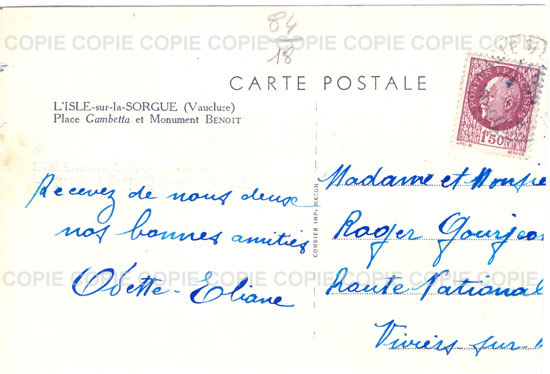 COPIE COPIE COPIE COPIE COPIE COPIE COPIE
84
18
CARTE POSTALE
L'ISLE-sur-la-SORGUE (Vaucluse)
Place Gambetta et Monument BENOIT
1F50
COMBIER IMP. MACON
Recevez de nous deux
nos bonnes amitiés
Odette-Eliane
Madame et Monsie
Roger Gourjeo
Route National
Viviers sur
COPIE COPIE COPIE COPIE COPIE COPIE COPIE
COPIE COPIE COPIE COPIE COPIE COPIE COPIE